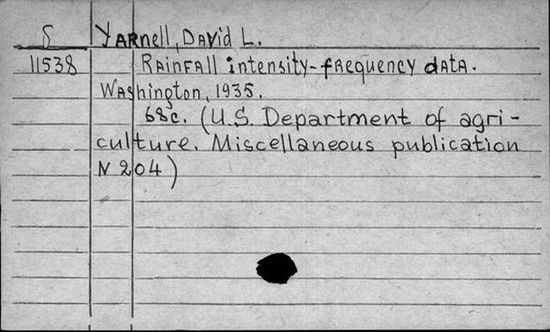 S Yarnell, David L.
11538 Rainfall intensity-frequency data.
Washington, 1935.
68c. (U.S. Department of agri-
culture. Miscellaneous publication
N 204)